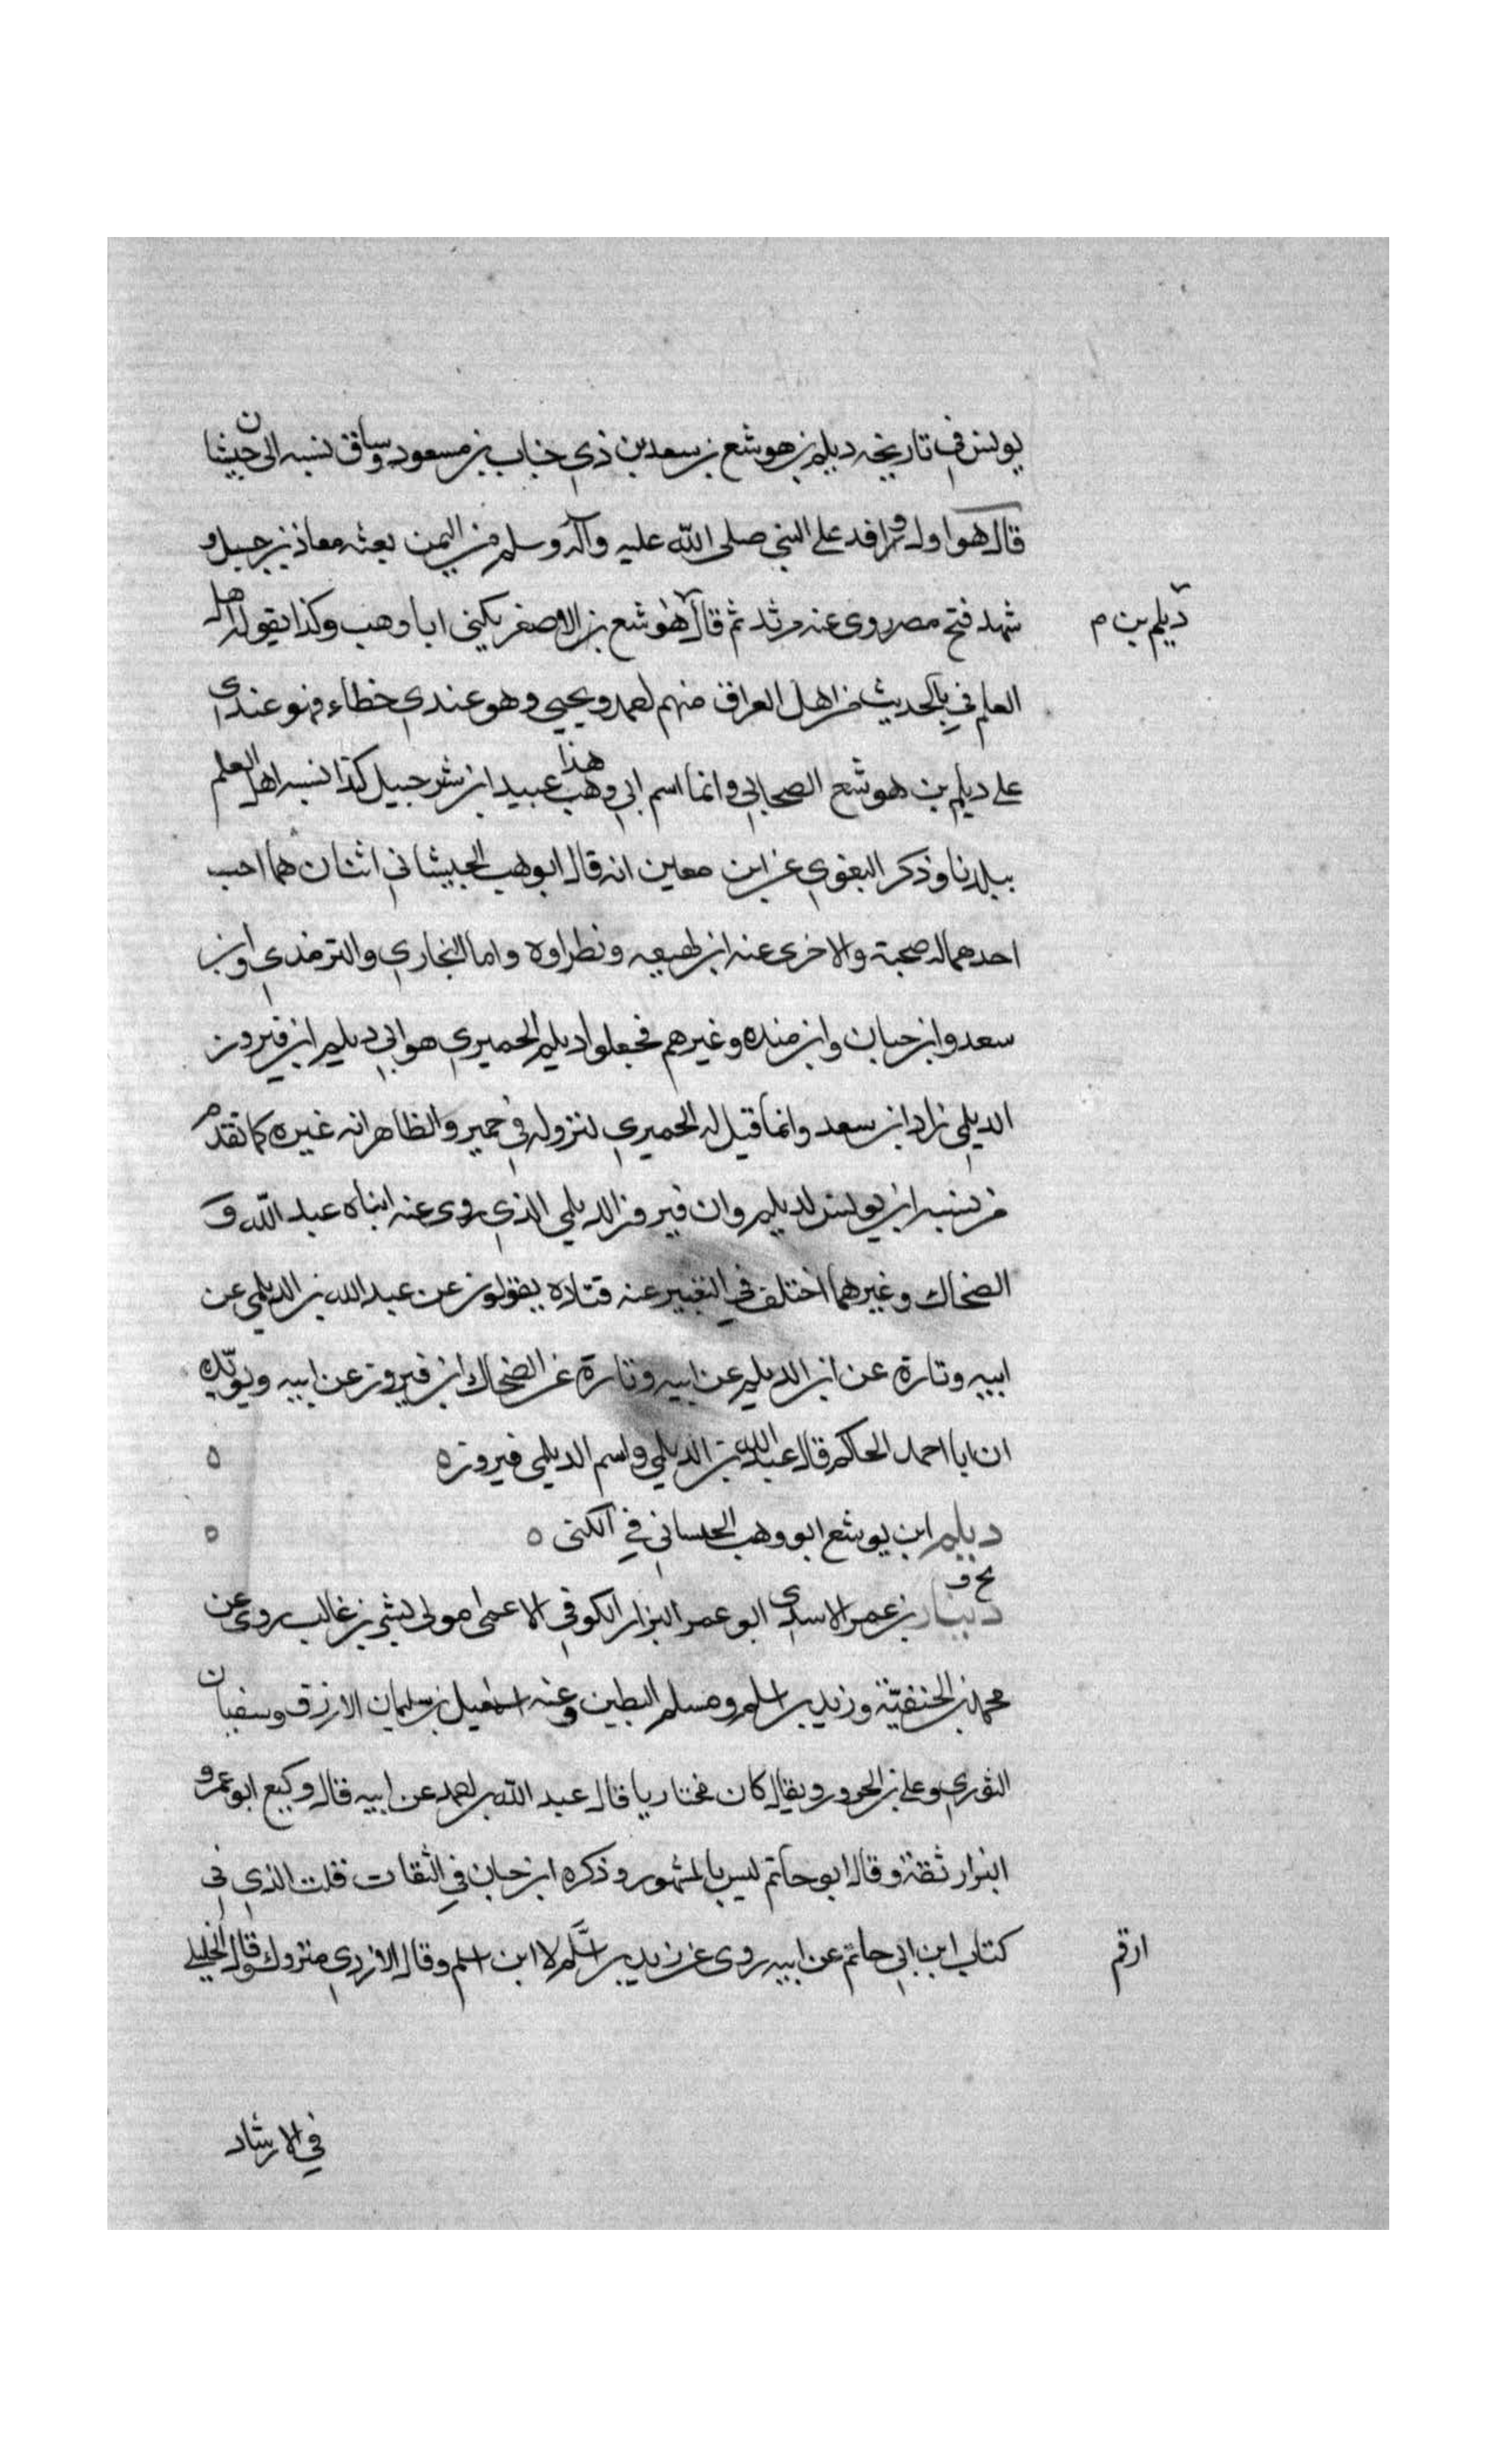 يونس في تاريخه ديلم بن هوشع بن سعد بن ذي جناب بن مسعود وساق نسبه الى جيشان
قال هو اول وافد على النبي صلى الله عليه وآله وسلم من اليمن بعثه معاذ بن جبل و
شهد فتح مصر روى عنه مرثد ثم قال هوشع بن الاصغر يكنى ابا وهب وكذا يقوله اهل
ديلم بن م
العلم في بالحديث من اهل العراق منهم احمد ويحيى وهو عندي خطاء فهو عندي
على ديلم بن هوشع الصحابي وانما اسم ابي وهب هذا عبيد ابن شرحبيل كذا نسبه اهل العلم
ببلدنا وذكر البغوي عن ابن معين انه قال ابو وهب الجيشاني اثنان هما احب
احدهما له صحبة والاخرى عنه ابن لهيعه ونظراوه واما البخاري والترمذي وابن
سعد وابن حبان وابن منده وغيرهم فجعلوا ديلم الحميري هو ابي ديلم ابن فيروز
الديلمي زاد ابن سعد وانما قيل له الحميري لنزوله في حمير والظاهر انه غيره كما تقدم
من نسبه ابن يونس لديلم وان فيروز الديلمي الذي روى عنه ابناه عبد الله و
الضحاك وغيرهما اختلف في التعبير عنه فتلاه يقولون عن عبد الله بن الديلمي عن
ابيه وتارة عن ابن الديلم عن ابيه وتارة عن الضحاك ابن فيروز عن ابيه ويويّد
ان ابا احمد الحاكم قال عبد الله بن الديلمي واسم الديلمي فيروز ه ه
ديلم ابن يوشع ابو وهب الحساني في الكنى ه ه
بخ ق
دينار بن عمر الاسدي ابو عمر البزار الكوفي الاعمى مولى بشر بن غالب روى عن
محمد بن الحنفيّة وزيد بن اسلم ومسلم البطين وعنه اسمعيل بن سليمان الازرق وسفيان
الثوري وعلي بن الحرور ويقال كان مختاريا قال عبد الله بن احمد عن ابيه قال وكيع ابو عمرو
البزار ثقة وقال ابو حاتم ليس بالمشهور وذكره ابن حبان في الثقات قلت الذي في
كتاب ابن ابي حاتم عن ابيه روى عن زيد بن اسلم لا ابن اسلم وقال الازدي متروك وقال الخليلي
ارقم
في الارشاد